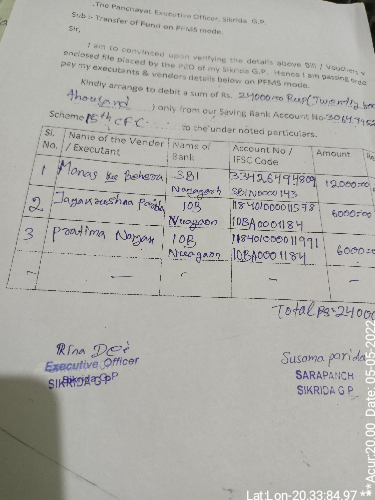 The Panchayat Executive Officer, Sikrida G.P.
Sub :- Transfer of Fund on PFMS mode.
Sir,
I am to convinced upon verifying the details above Bill / Vouchers
enclosed file placed by the PEO of my Sikrida G.P. Hence I am passing
pay my executants & vendors details below on PFMS mode.
Kindly arrange to debit a sum of Rs. 24000=00 Rup(Twenty four
thousand ) only from our Saving Bank Account No-
Scheme 15th CFC to the under noted particulars.
Sl. No. Name of the Vender / Executant Name of Bank Account No / IFSC Code Amount
1 Manas Behera SBI Nayagarh 33426494809 SBIN0000143 12000=00
2 Parida IOB Nuagaon 184010000011578 IOBA0001184 6000=00
3 Pratima Nayak IOB Nuagaon 184010000011991 IOBA0001184 6000=0
Total Rs=24000
Rina Dei
Executive Officer
SIKRIDA G P
Susama parida
SARAPANCH
SIKRIDA G P
Lat:Lon-20.33:84.97 **Acur:20.80 Date: 05-05-2022